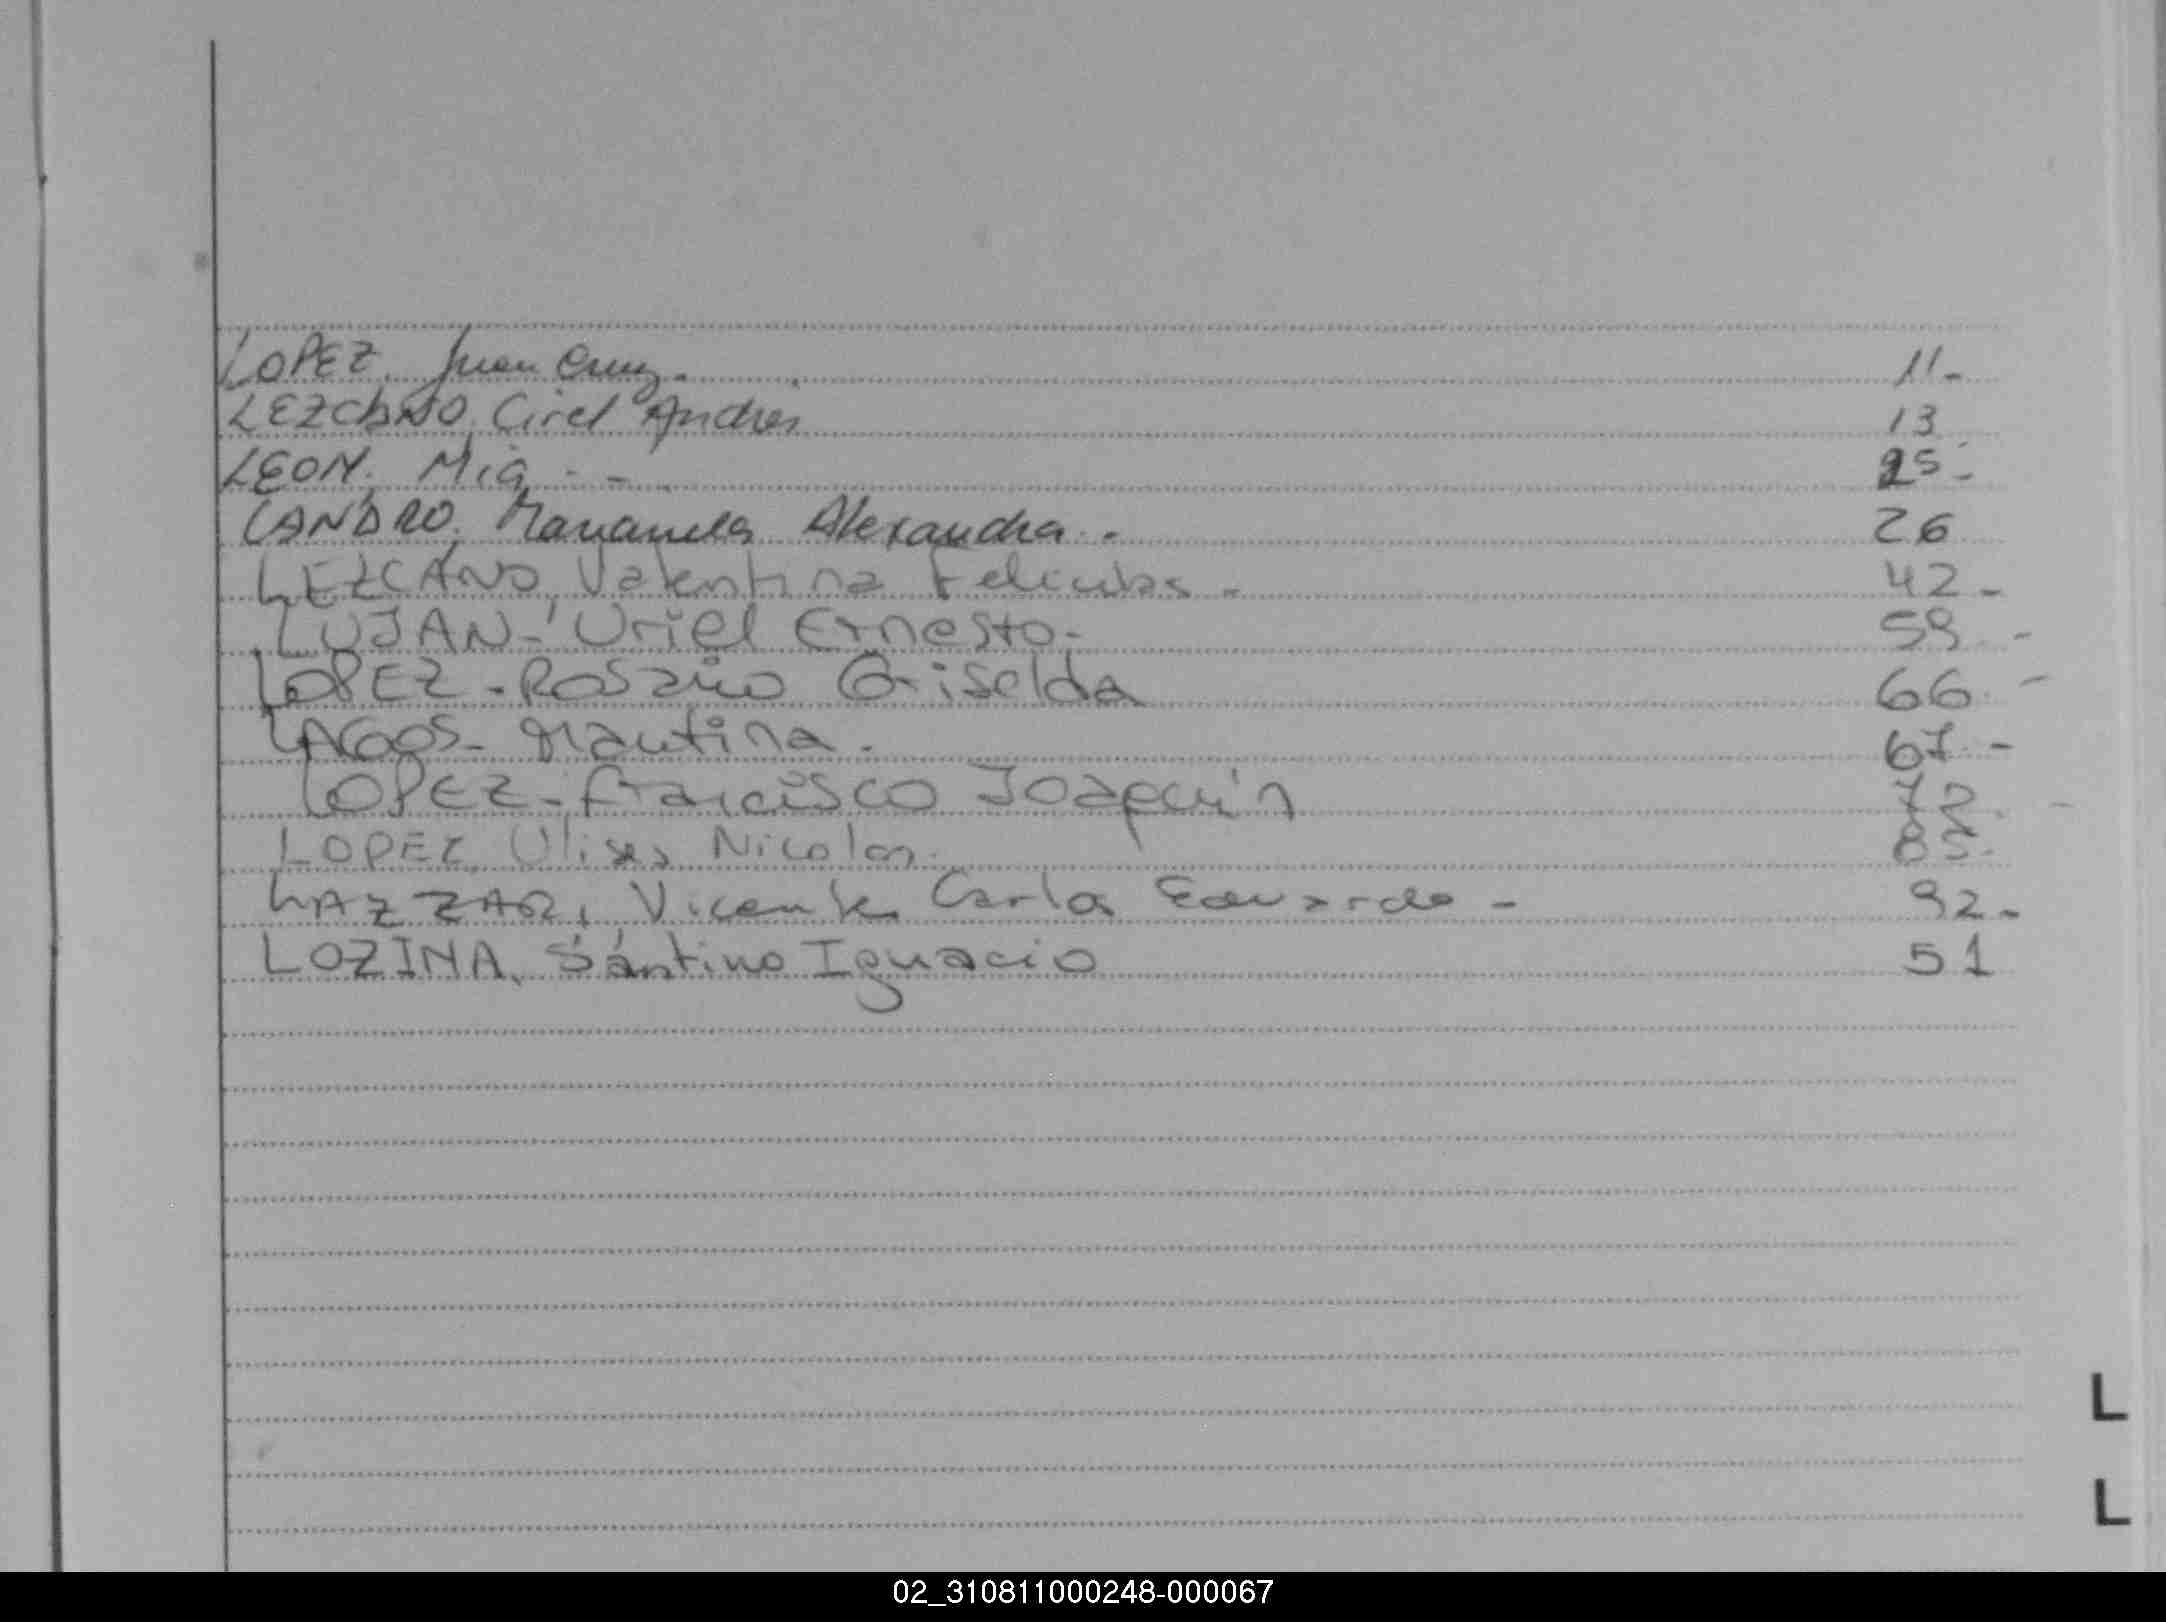 LOPEZ, Juan Cruz. 11-
LEZCANO, Cirel Andres 13
LEON, Mia - 25-
LANDRO, Marianela Alexandra - 26
LEZCANO, Valentina - 42-
LUJAN - Uriel Ernesto - 59 -
LOPEZ - Rosario Griselda 66 -
LAGOS - Martina. 67 -
LOPEZ - Francisco Joaquín -
LOPEZ, Ulises Nicolas. 85-
LAZZAR, Vicente Carlos Eduardo - 92-
LOZINA, Santino Ignacio 51
L
L
02_310811000248-000067